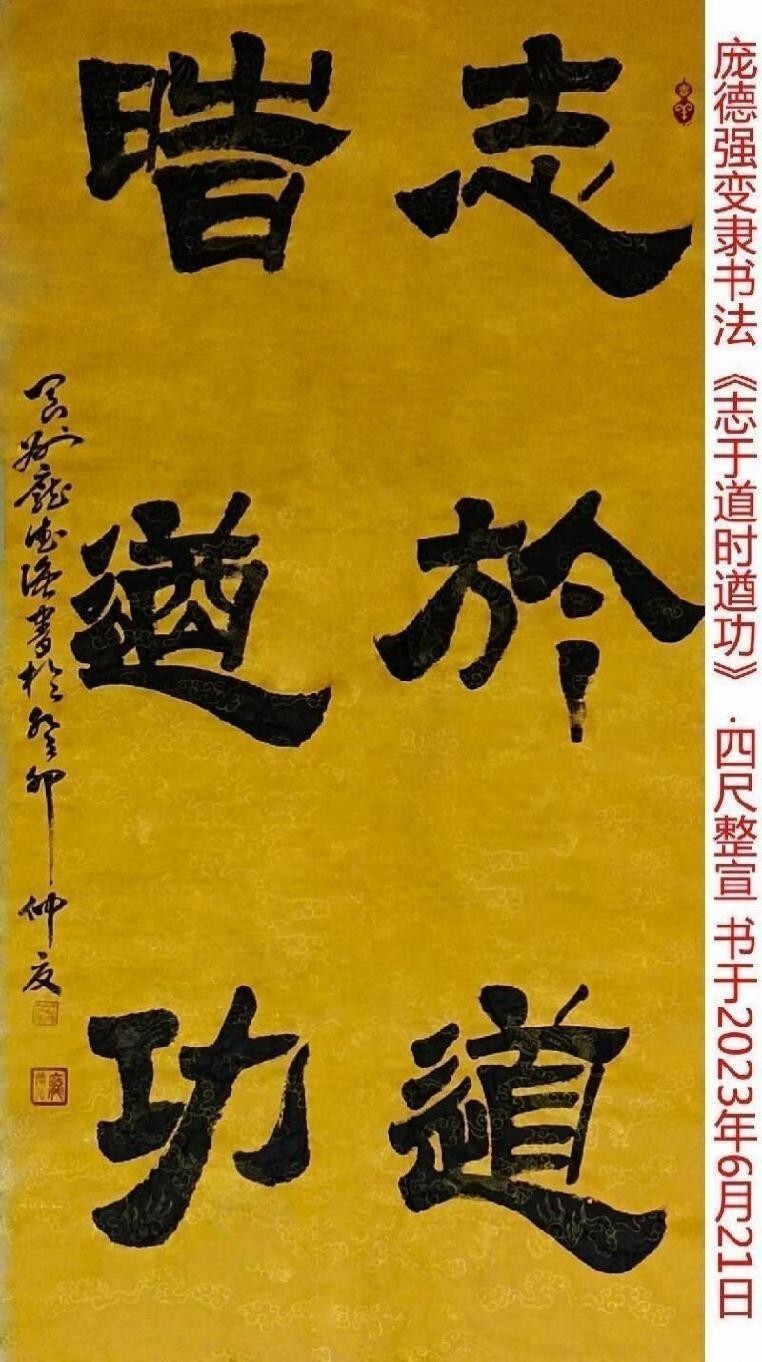 志於道
旹遒功
冥州龐德强書於癸卯仲夏
庞德强变隶书法《志于道时遒功》·四尺整宣 书于2023年6月21日